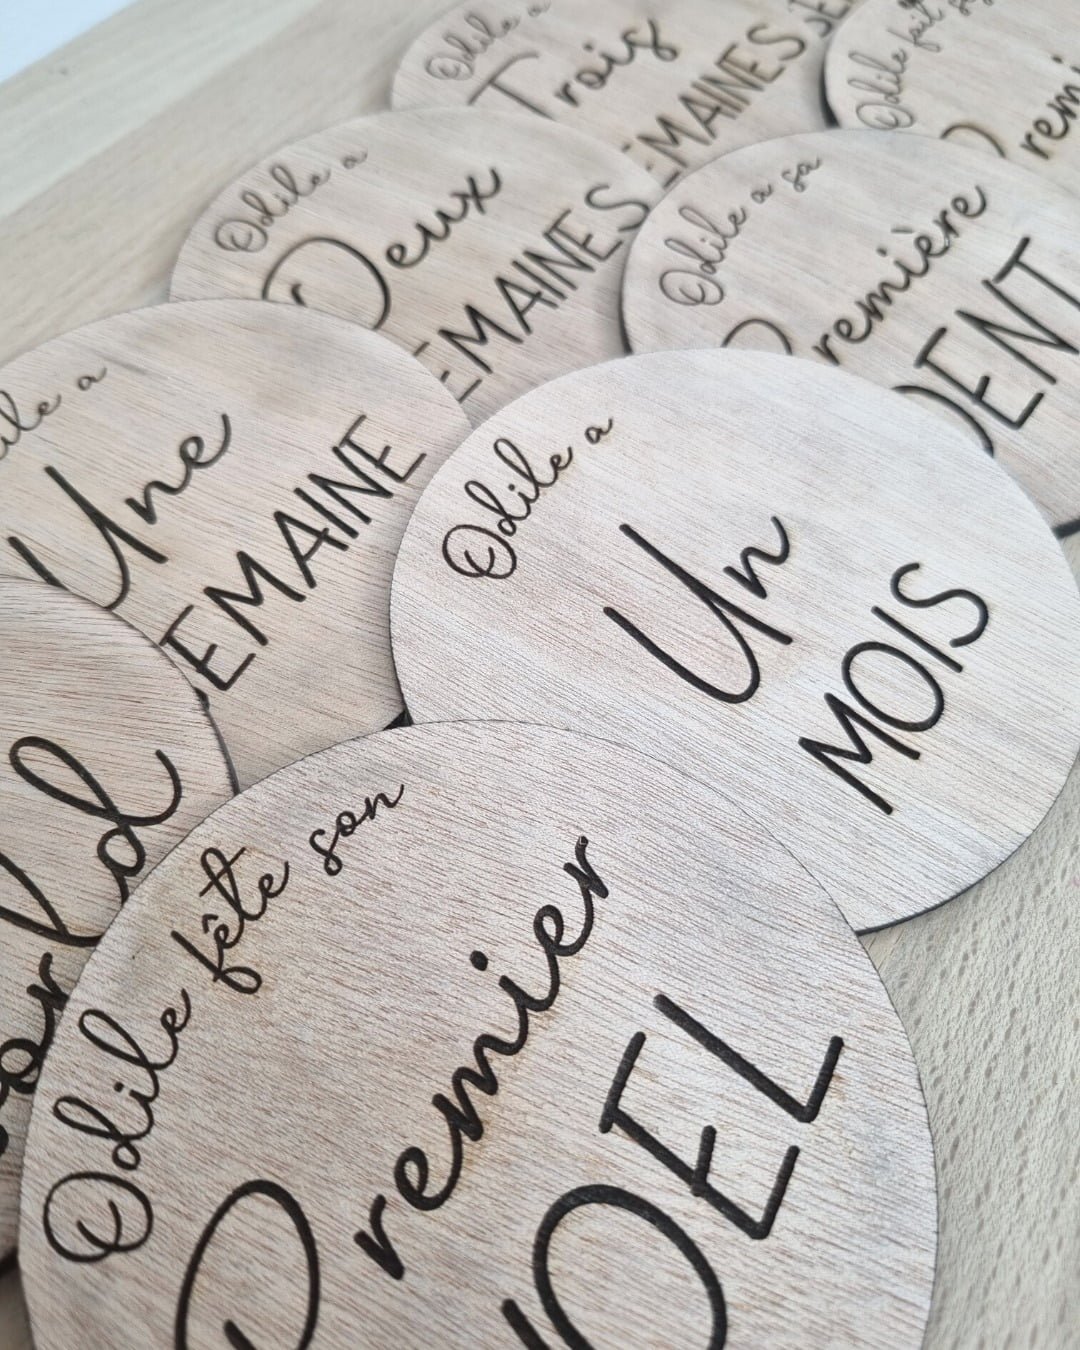 Odile a
Trois
SEMAINES
Odile fait ses
Premi
Odile a
Deux
SEMAINES
Odile a sa
Première
DENT
Odile a
Une
SEMAINE
Odile a
Un
MOIS
Odile fête son
Premier
NOEL